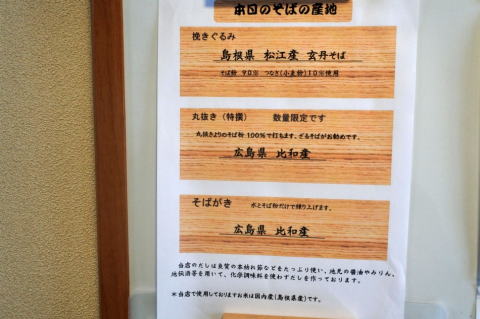 本日のそばの産地
挽きぐるみ
島根県 松江産 玄丹そば
そば粉 90% つなぎ(小麦粉)10%使用
丸抜き(特撰) 数量限定です
丸抜きよりのそば粉100%で打ちます、ざるそばがお勧めです。
広島県 比和産
そばがき 水とそば粉だけで練り上げます。
広島県 比和産
当店のだしは良質の本枯れ節などをたっぷり使い、地元の醤油やみりん、
地伝酒等を用いて、化学調味料を使わずだしを作っております。
*当店で使用しておりますお米は国内産(島根県産)です。